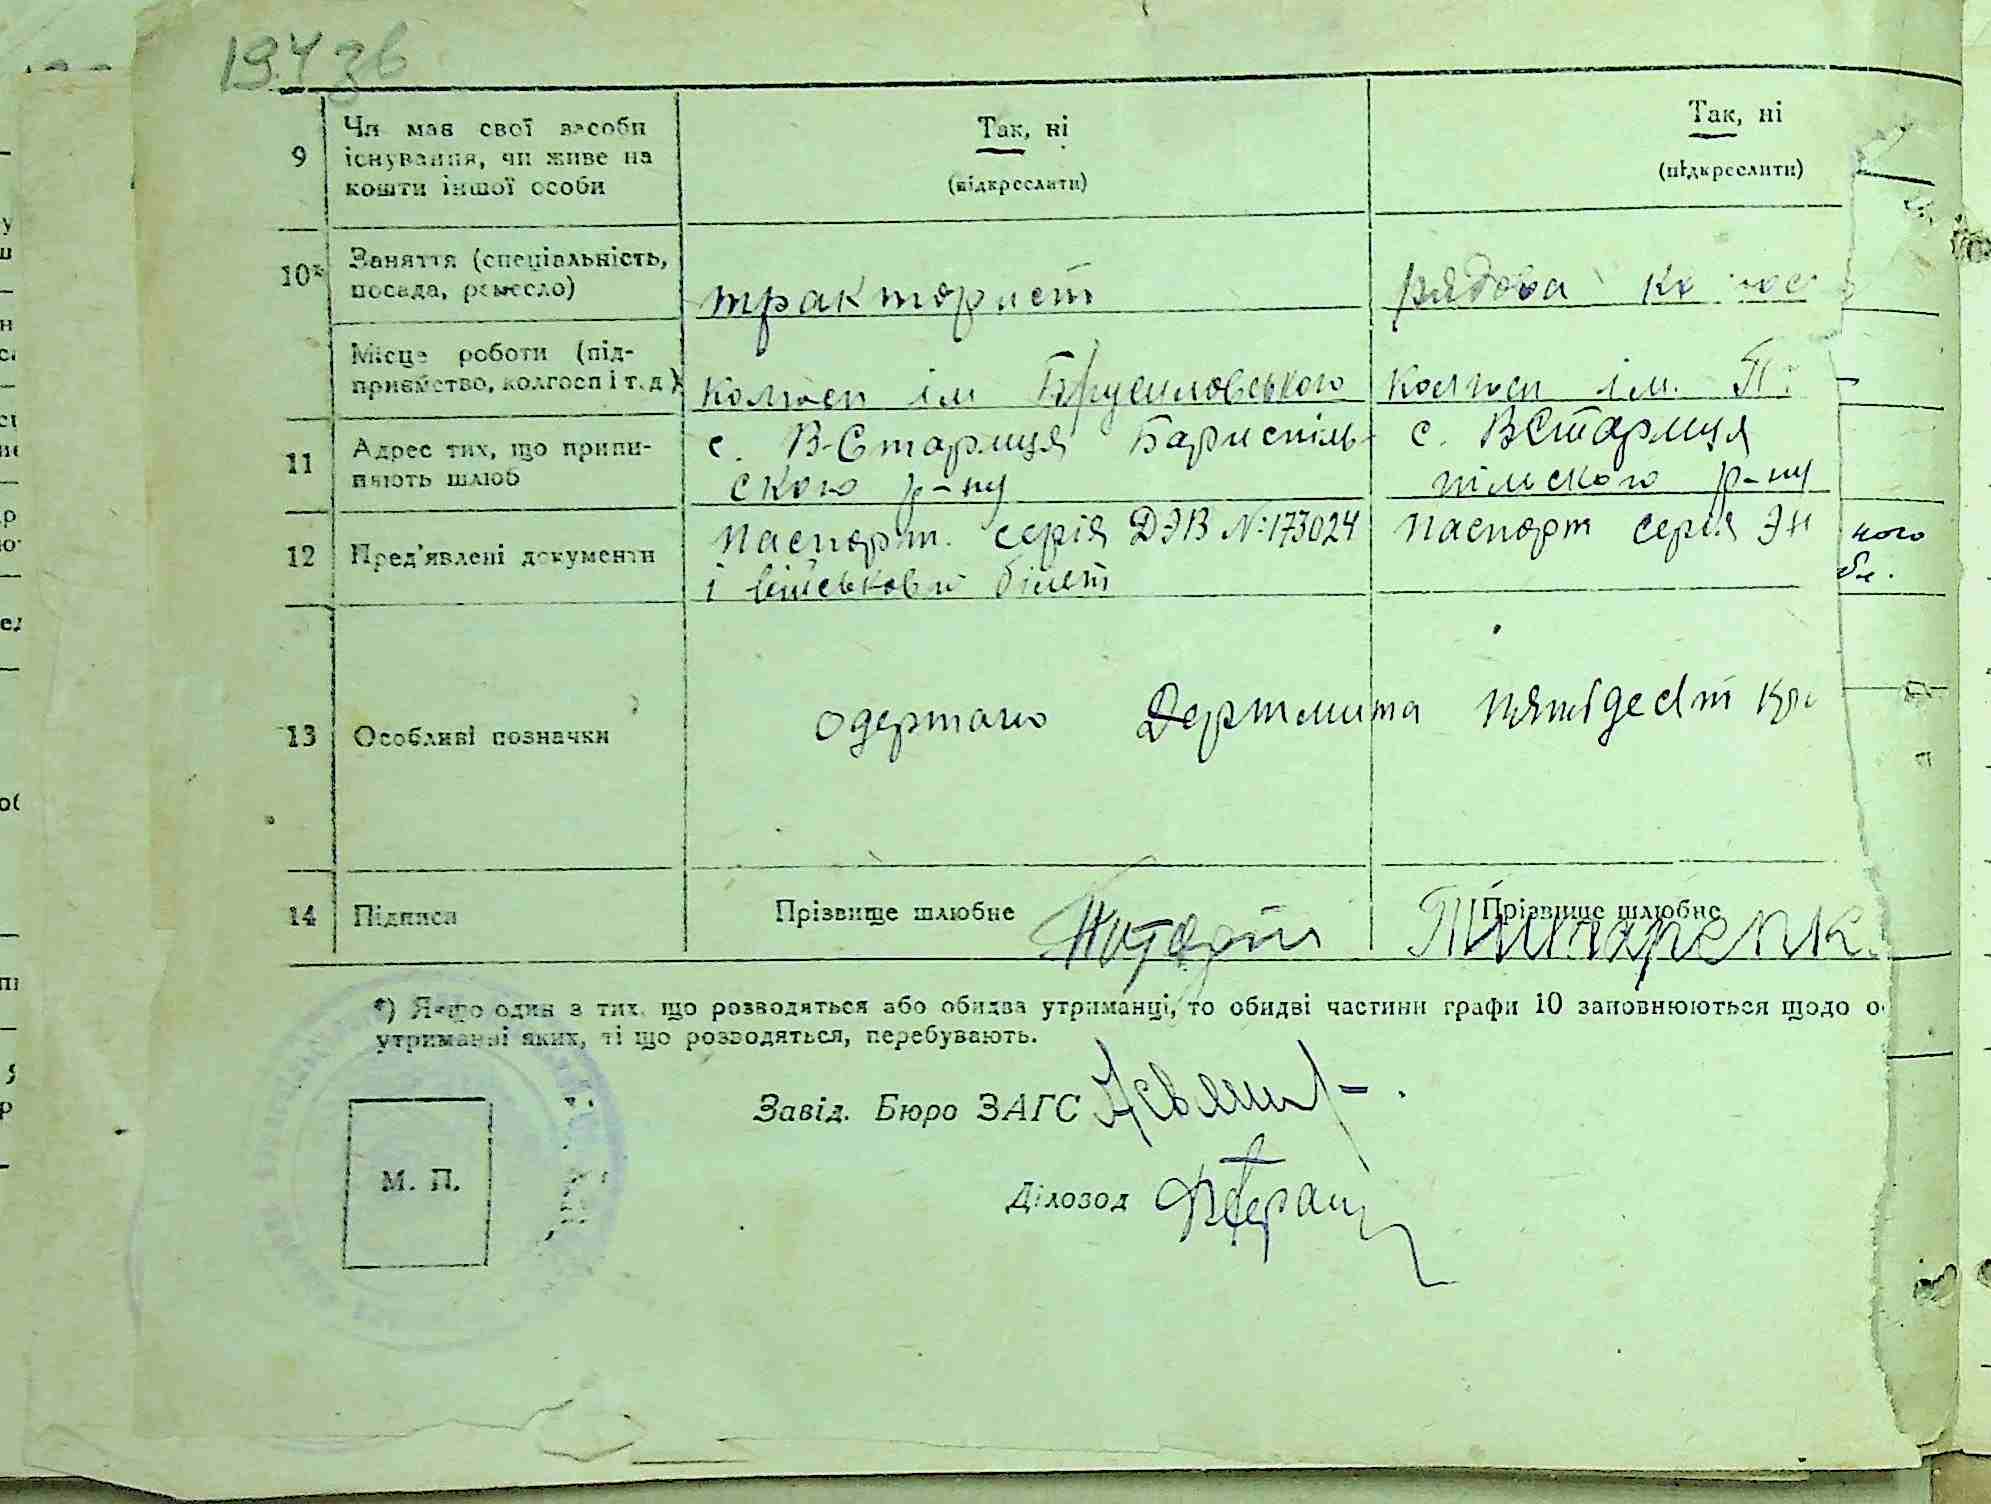 194 зв
9 Чи має свої засоби існування, чи живе на кошти іншої особи
Так, ні
(підкреслити)
Так, ні
(підкреслити)
10* Заняття (спеціальність, посада, ремесло)
тракторист
рядова
Місце роботи (підприємство, колгосп і т. д.)
колгосп ім Брусиловського
колгосп ім.
11 Адрес тих, що припиняють шлюб
с. В-Стариця Бориспіль-
ського р-ну
с. ВСтариця
пільского р-ну
12 Пред'явлені документи
паспорт. серія ДЭВ №173024
і військовий білет
паспорт серія ЭН
ного
13 Особливі позначки
одержано Держмита пятдесят
14 Підписи
Прізвище шлюбне
Прізвище шлюбне
Титаренк
*) Якщо один з тих, що розводяться або обидва утриманці, то обидві частини графи 10 заповнюються щодо о
утриманні яких, ті що розводяться, перебувають.
Завід. Бюро ЗАГС
Діловод
М. П.